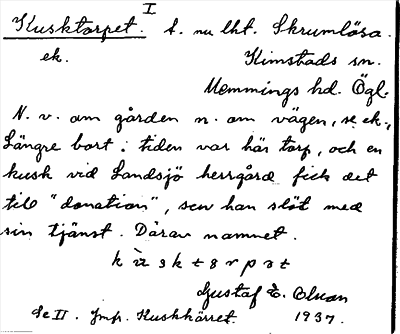 I
Kusktorpet. t. nu lht. Skrumlösa.
ek. Kimstads sn.
Memmings hd. Ögl.
N. v. om gården n. om vägen, se ek.,
Längre bort i tiden var här torp, och en
kusk vid Landsjö herrgård fick det
till "donation", sen han slöt med
sin tjänst. Därav namnet.
Gustaf E. Olson
Se II. Jmf. Kuskkärret. 1937.